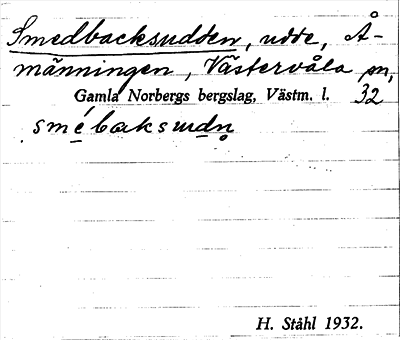 Smedbacksudden, udde, Å-
männingen, Västervåla sn,
Gamla Norbergs bergslag, Västm. l. 32
smébaksudn̥
H. Ståhl 1932.